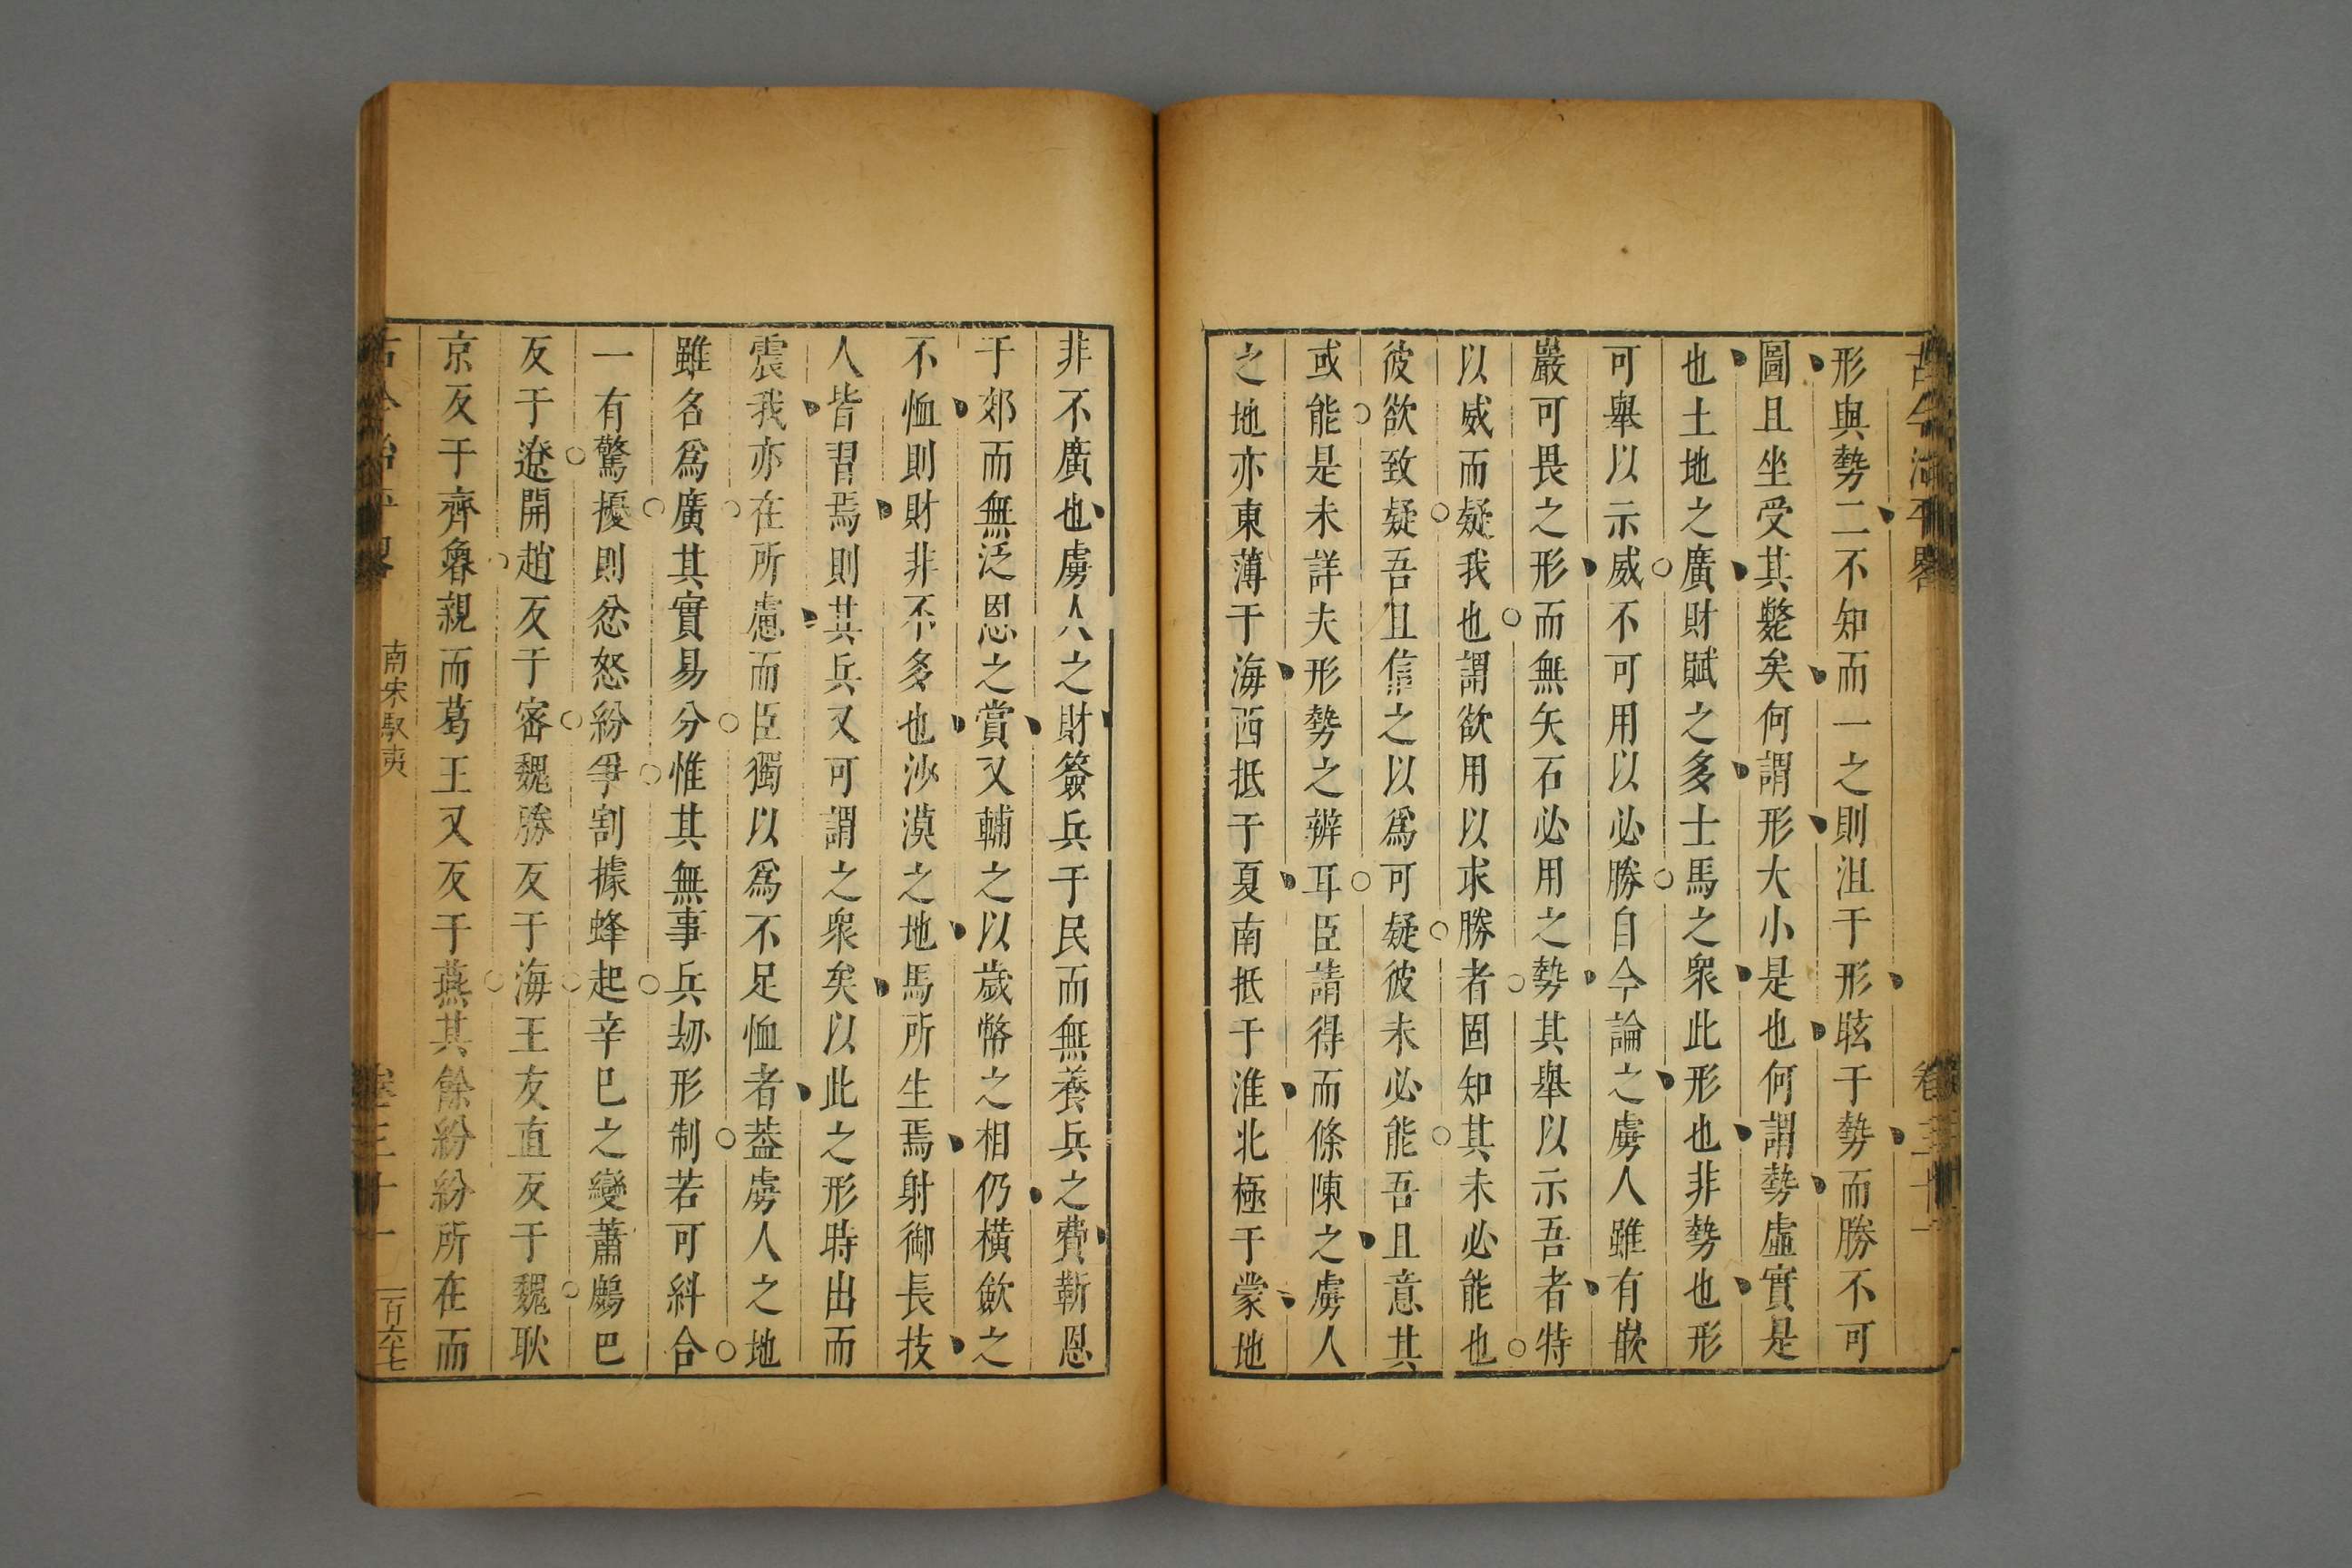 古今治平畧 卷三十一
形與勢二不知而一之則沮于形眩于勢而勝不可
圖且坐受其斃矣何謂形大小是也何謂勢虛實是
也土地之廣財賦之多士馬之衆此形也非勢也形
可舉以示威不可用以必勝自今論之虜人雖有嵌
嚴可畏之形而無矢石必用之勢其舉以示吾者特
以威而疑我也謂欲用以求勝者固知其未必能也
彼欲致疑吾且信之以爲可疑彼未必能吾且意其
或能是未詳夫形勢之辨耳臣請得而條陳之虜人
之地亦東薄于海西抵于夏南抵于淮北極于蒙地
非不廣也虜人之財簽兵于民而無養兵之費靳恩
于郊而無泛恩之賞又輔之以歲幣之相仍橫斂之
不恤則財非不多也沙漠之地馬所生焉射御長技
人皆習焉則其兵又可謂之衆矣以此之形時出而
震我亦在所慮而臣獨以爲不足恤者葢虜人之地
雖名爲廣其實易分惟其無事兵刼形制若可糾合
一有驚擾則忿怒紛爭割據蜂起辛巳之變蕭鷓巴
反于遼開趙反于密魏勝反于海王友直反于魏耿
京反于齊魯親而葛王又反于燕其餘紛紛所在而
古今治平畧 南宋馭夷 卷三十一 一百六七